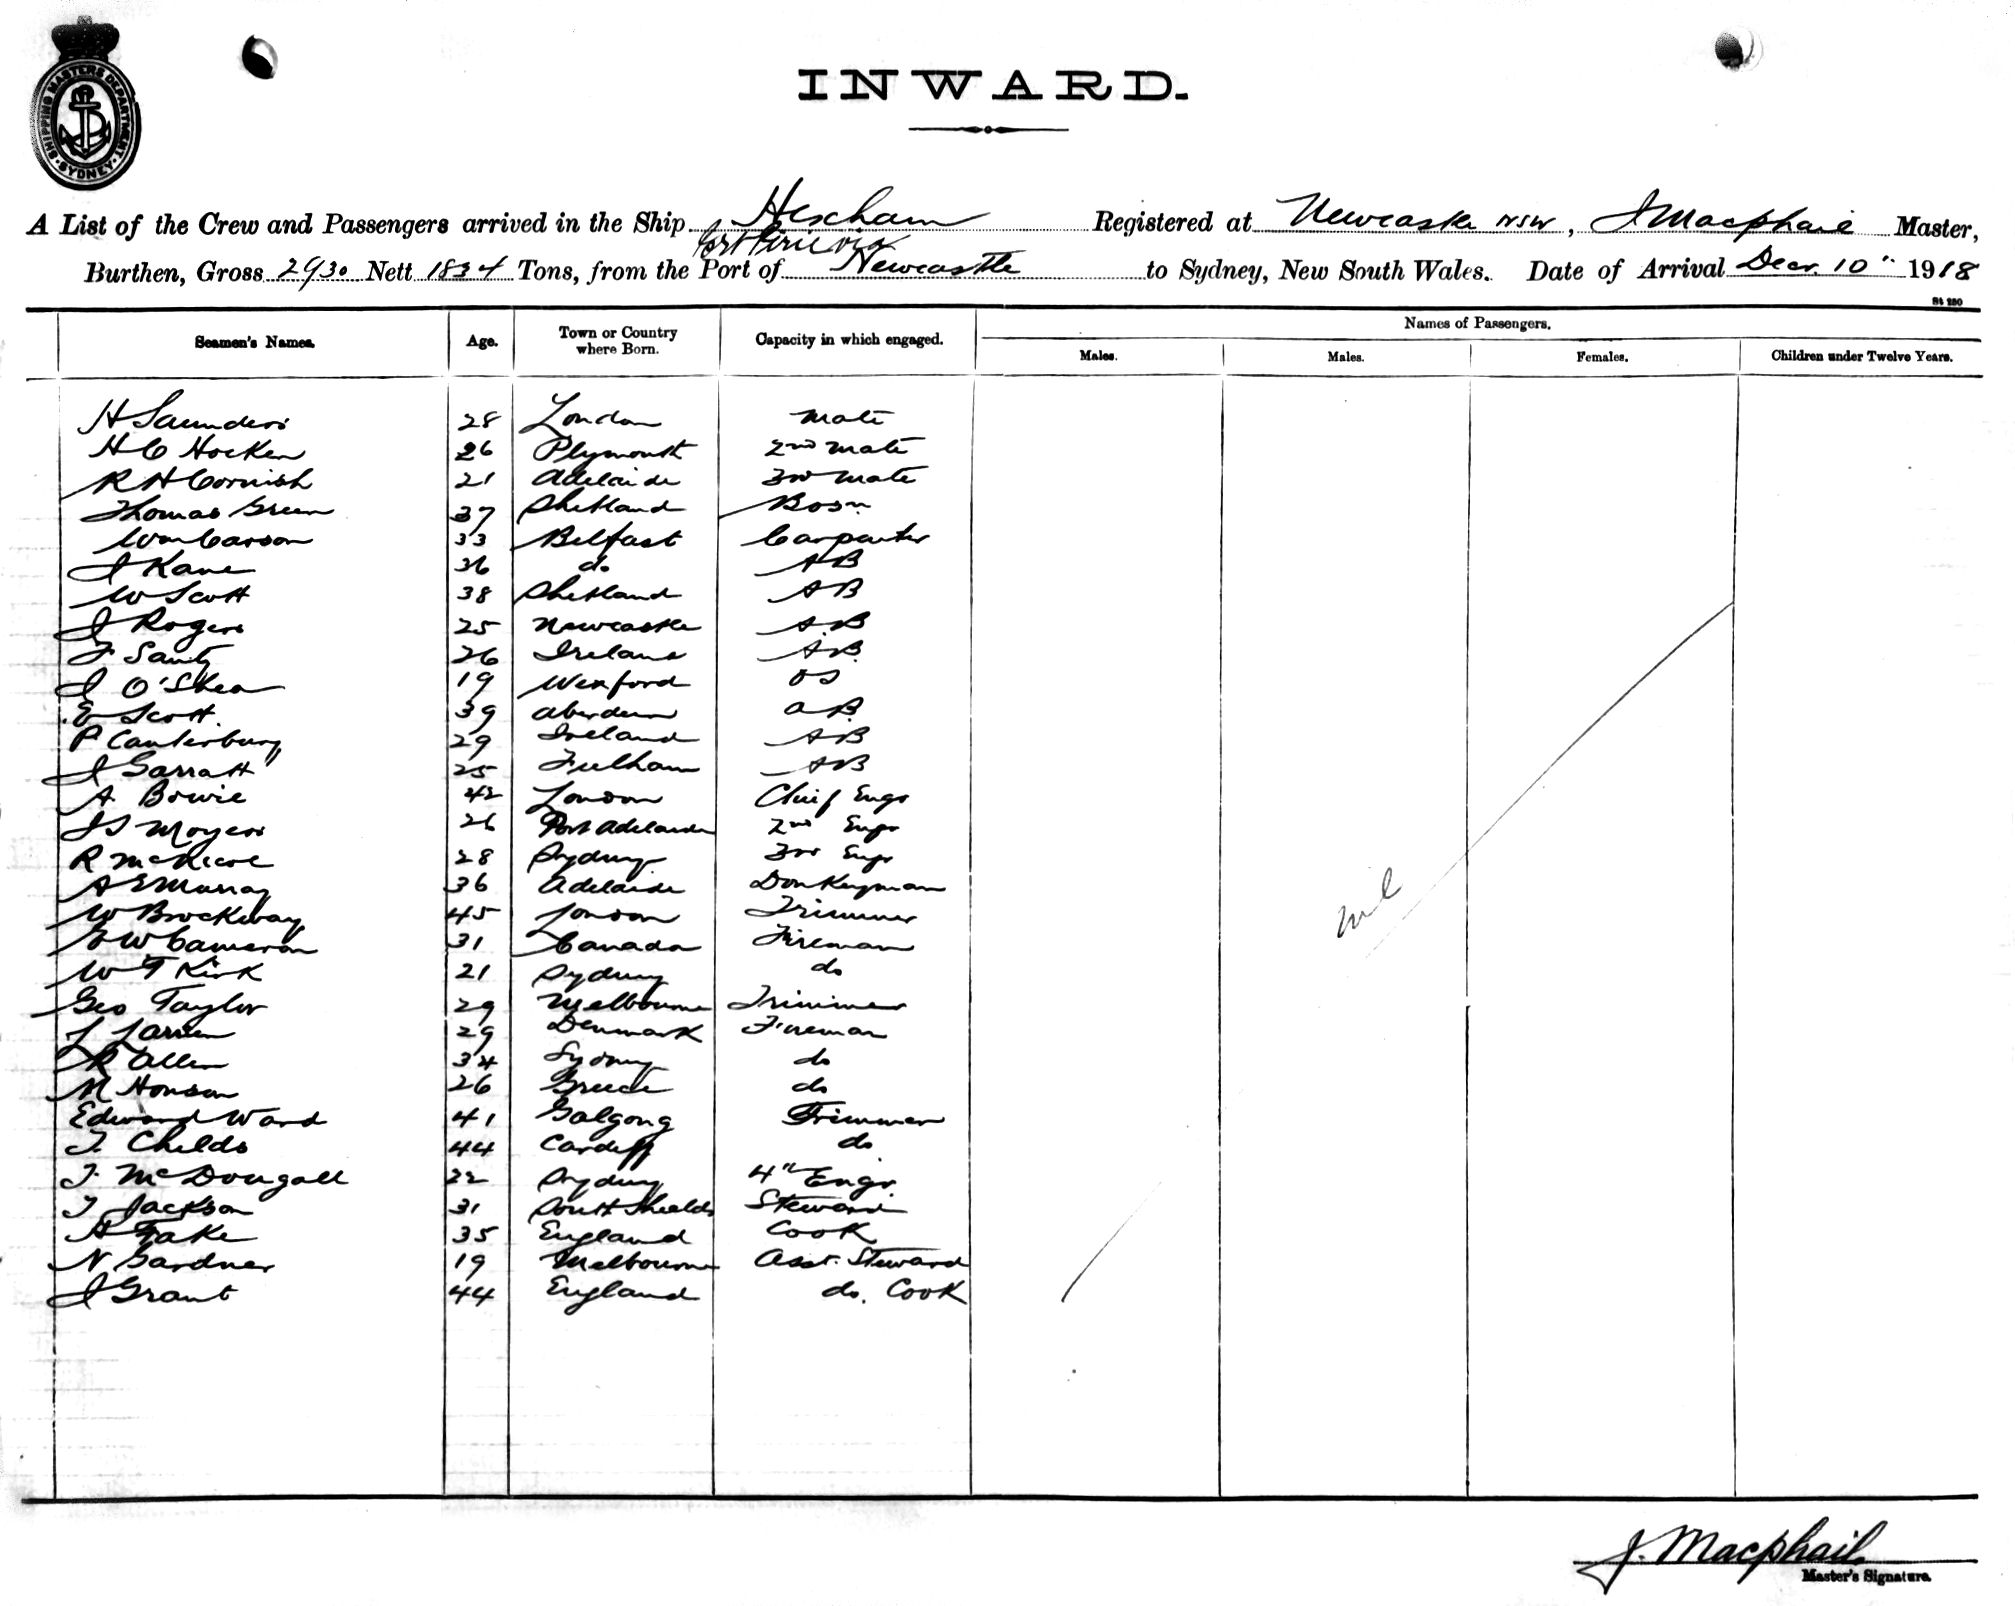 SHIPPING MASTERS DEPARTMENT · SYDNEY ·
INWARD.
A List of the Crew and Passengers arrived in the Ship Hexham Registered at Newcastle NSW, J Macphail Master,
Port Pirie via
Burthen, Gross 2930 Nett 1834 Tons, from the Port of Newcastle to Sydney, New South Wales. Date of Arrival Decr. 10" 1918
St 280
Seamen's Names. Age. Town or Country where Born. Capacity in which engaged. Names of Passengers.
Males. Males. Females. Children under Twelve Years.
H Saunders 28 London Mate
H C Hocken 26 Plymouth 2nd Mate
R H Cornish 21 Adelaide 3rd Mate
Thomas Green 37 Shetland Bosn
Wm Carson 33 Belfast Carpenter
J Kane 36 do AB
W Scott 38 Shetland AB
J Rogers 25 Newcastle AB
F 26 Ireland AB
J O'Shea 19 Wexford OS
E Scott 39 Aberdeen AB
P Canterbury 29 Ireland AB
J Garratt 25 Fulham AB
A Bowie 42 London Chief Engr
J S Moyes 26 Port Adelaide 2nd Engr
R 28 Sydney 3rd Engr
A E Murray 36 Adelaide Donkeyman
W Brockway 45 London Trimmer
G W Cameron 31 Canada Fireman
W T Kirk 21 Sydney do
Geo Taylor 29 Melbourne Trimmer
L Larsen 29 Denmark Fireman
R Allen 34 Sydney do
M 26 Greece do
Edward Ward 41 Gulgong Trimmer
T. Childs 44 Cardiff do
J. McDougall 22 Sydney 4th Engr.
T Jackson 31 South Shields Steward
H Fake 35 England Cook
N Gardner 19 Melbourne Asst. Steward
J Grant 44 England do. Cook
nil
J. Macphail
Master's Signature.